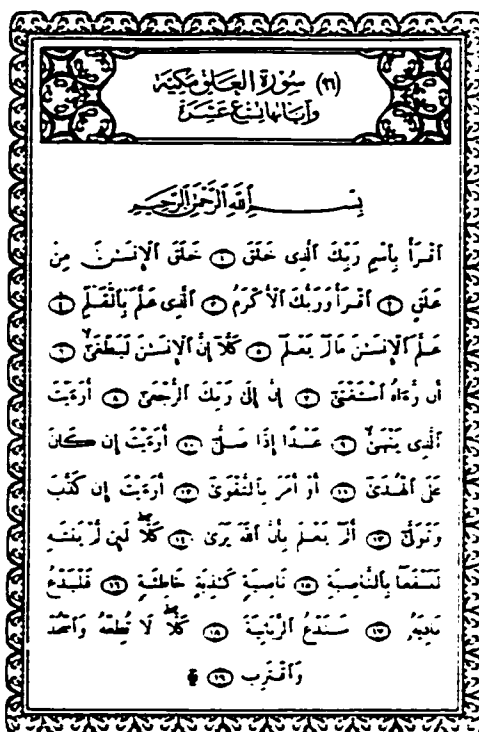 (٩٦) سُورَةُ العَلَقِ مَكِّيَّة
وَآيَاتُهَا تِسْعَ عَشْرَةَ
بِسْمِ ٱللَّهِ ٱلرَّحْمَٰنِ ٱلرَّحِيمِ
ٱقْرَأْ بِٱسْمِ رَبِّكَ ٱلَّذِى خَلَقَ ١ خَلَقَ ٱلْإِنسَٰنَ مِنْ
عَلَقٍ ٢ ٱقْرَأْ وَرَبُّكَ ٱلْأَكْرَمُ ٣ ٱلَّذِى عَلَّمَ بِٱلْقَلَمِ ٤
عَلَّمَ ٱلْإِنسَٰنَ مَا لَمْ يَعْلَمْ ٥ كَلَّآ إِنَّ ٱلْإِنسَٰنَ لَيَطْغَىٰٓ ٦
أَن رَّءَاهُ ٱسْتَغْنَىٰٓ ٧ إِنَّ إِلَىٰ رَبِّكَ ٱلرُّجْعَىٰٓ ٨ أَرَءَيْتَ
ٱلَّذِى يَنْهَىٰ ٩ عَبْدًا إِذَا صَلَّىٰٓ ١٠ أَرَءَيْتَ إِن كَانَ
عَلَى ٱلْهُدَىٰٓ ١١ أَوْ أَمَرَ بِٱلتَّقْوَىٰٓ ١٢ أَرَءَيْتَ إِن كَذَّبَ
وَتَوَلَّىٰٓ ١٣ أَلَمْ يَعْلَم بِأَنَّ ٱللَّهَ يَرَىٰ ١٤ كَلَّا لَئِن لَّمْ يَنتَهِ
لَنَسْفَعًۢا بِٱلنَّاصِيَةِ ١٥ نَاصِيَةٍ كَٰذِبَةٍ خَاطِئَةٍ ١٦ فَلْيَدْعُ
نَادِيَهُۥ ١٧ سَنَدْعُ ٱلزَّبَانِيَةَ ١٨ كَلَّا لَا تُطِعْهُ وَٱسْجُدْ
وَٱقْتَرِب ١٩